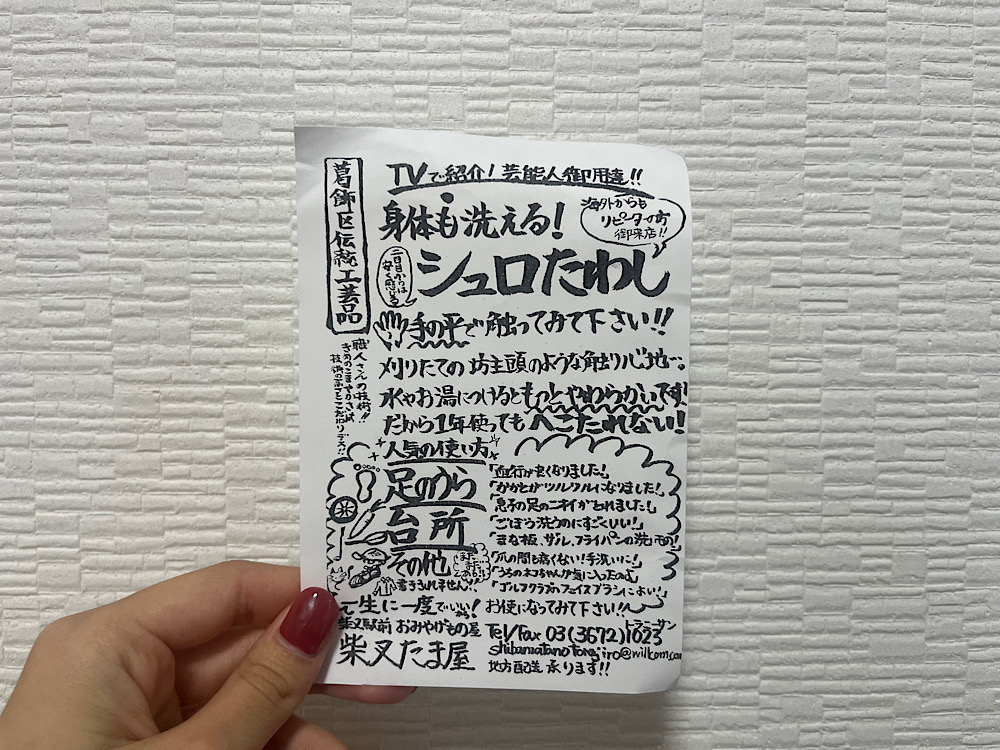 葛飾区伝統工芸品
TVで紹介!芸能人御用達!!
海外からも
リピーターの方
御来店!!
身体も洗える!
二日目からは
安く感じる
シュロたわし
手の平で触ってみて下さい!!
刈りたての坊主頭のような触り心地…。
水やお湯につけるともっとやわらかいです!
だから1年使ってもへこたれない!
職人さんの技術!!
きめのこまやかさは
技術の高さとこだわりデス!!
人気の使い方
足のうら
「血行が良くなりました!」
「かかとがツルツルになりました!」
「息子の足のニオイがとれました!」
台所
「ごぼう洗うのにすごくいい!」
「まな板、ザル、フライパンの洗いもの!」
その他
まだまだある!!
書ききれません!!
「爪の間も痛くない!手洗いに!」
「うちのネコちゃんが気に入ったのよ」
「ゴルフクラブのフェイスブラシによい!」
一生に一度でいいから!お使いになってみて下さい!!
柴又駅前 おみやげもの屋
柴又たま屋
トラニーサン
Tel/Fax 03(3672)1023
shibamatanotorajiro@willcom.com
地方配送承ります!!